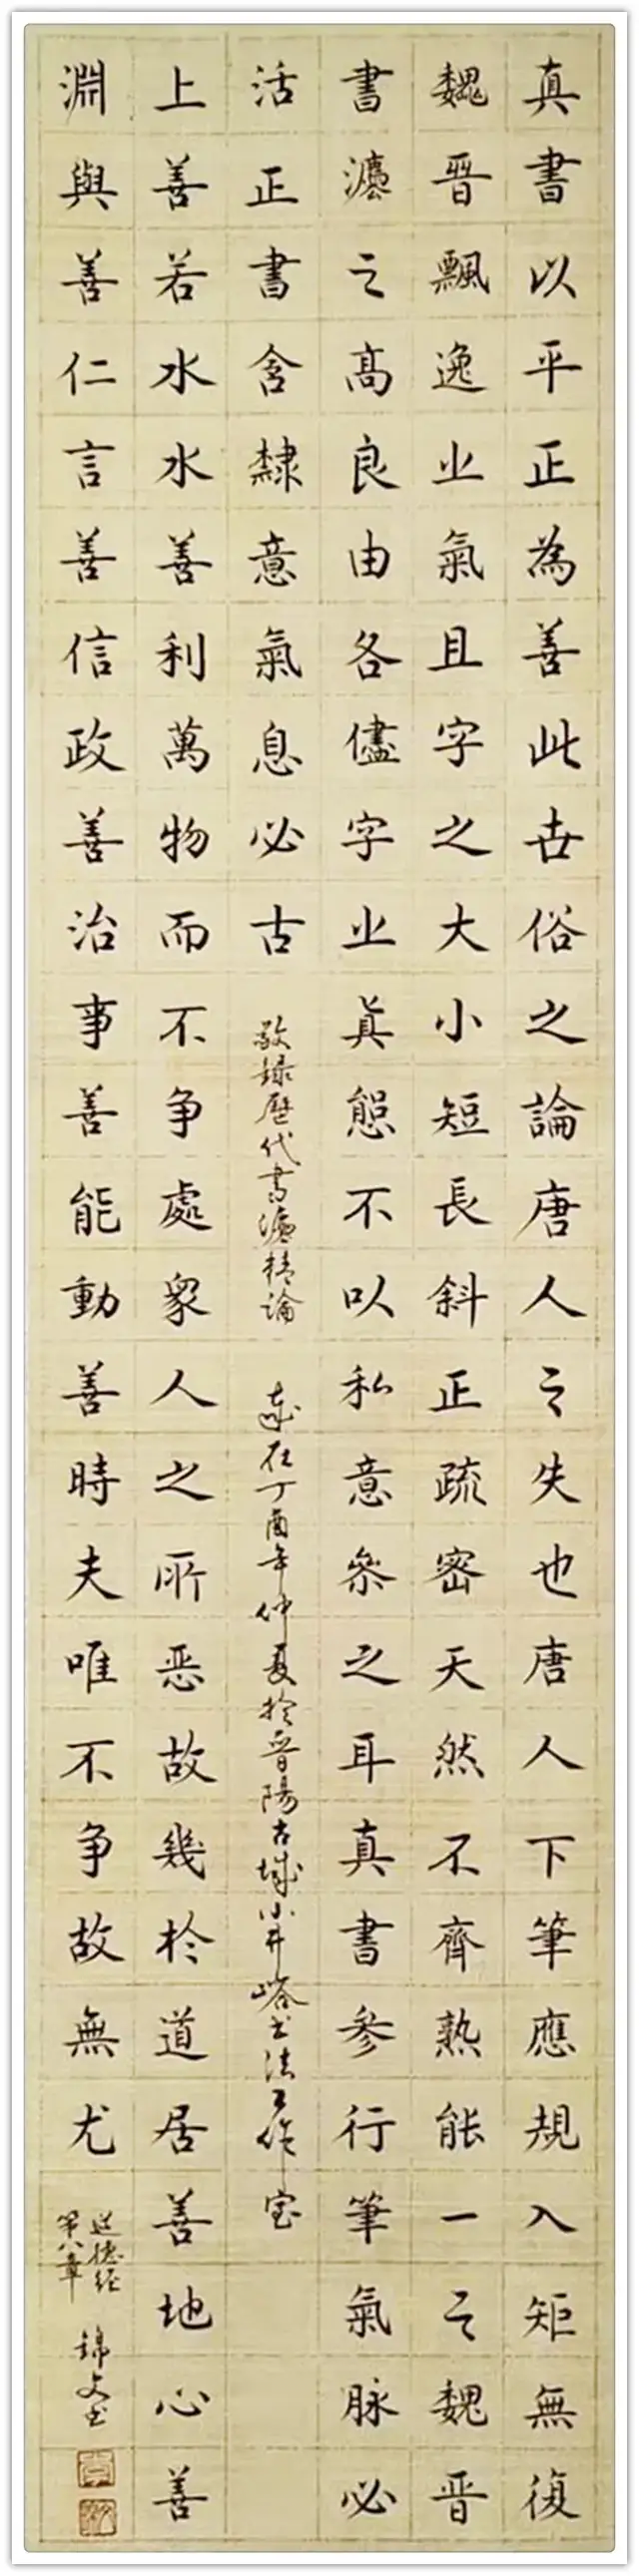 真書以平正為善此古俗之論唐人之失也唐人下筆應規入矩無復
魏晋飄逸之氣且字之大小短長斜正疏密天然不齊熟能一之魏晋
書灋之高良由各儘字之真態不以私意參之耳真書參行筆氣脉必
活正書含隸意氣息必古
敬録歷代書灋精論 歲在丁酉年仲夏於晋陽古城小井峪书法工作室
上善若水水善利萬物而不争處衆人之所恶故幾於道居善地心善
淵與善仁言善信政善治事善能動善時夫唯不争故無尤
道德经
第八章
錦文书